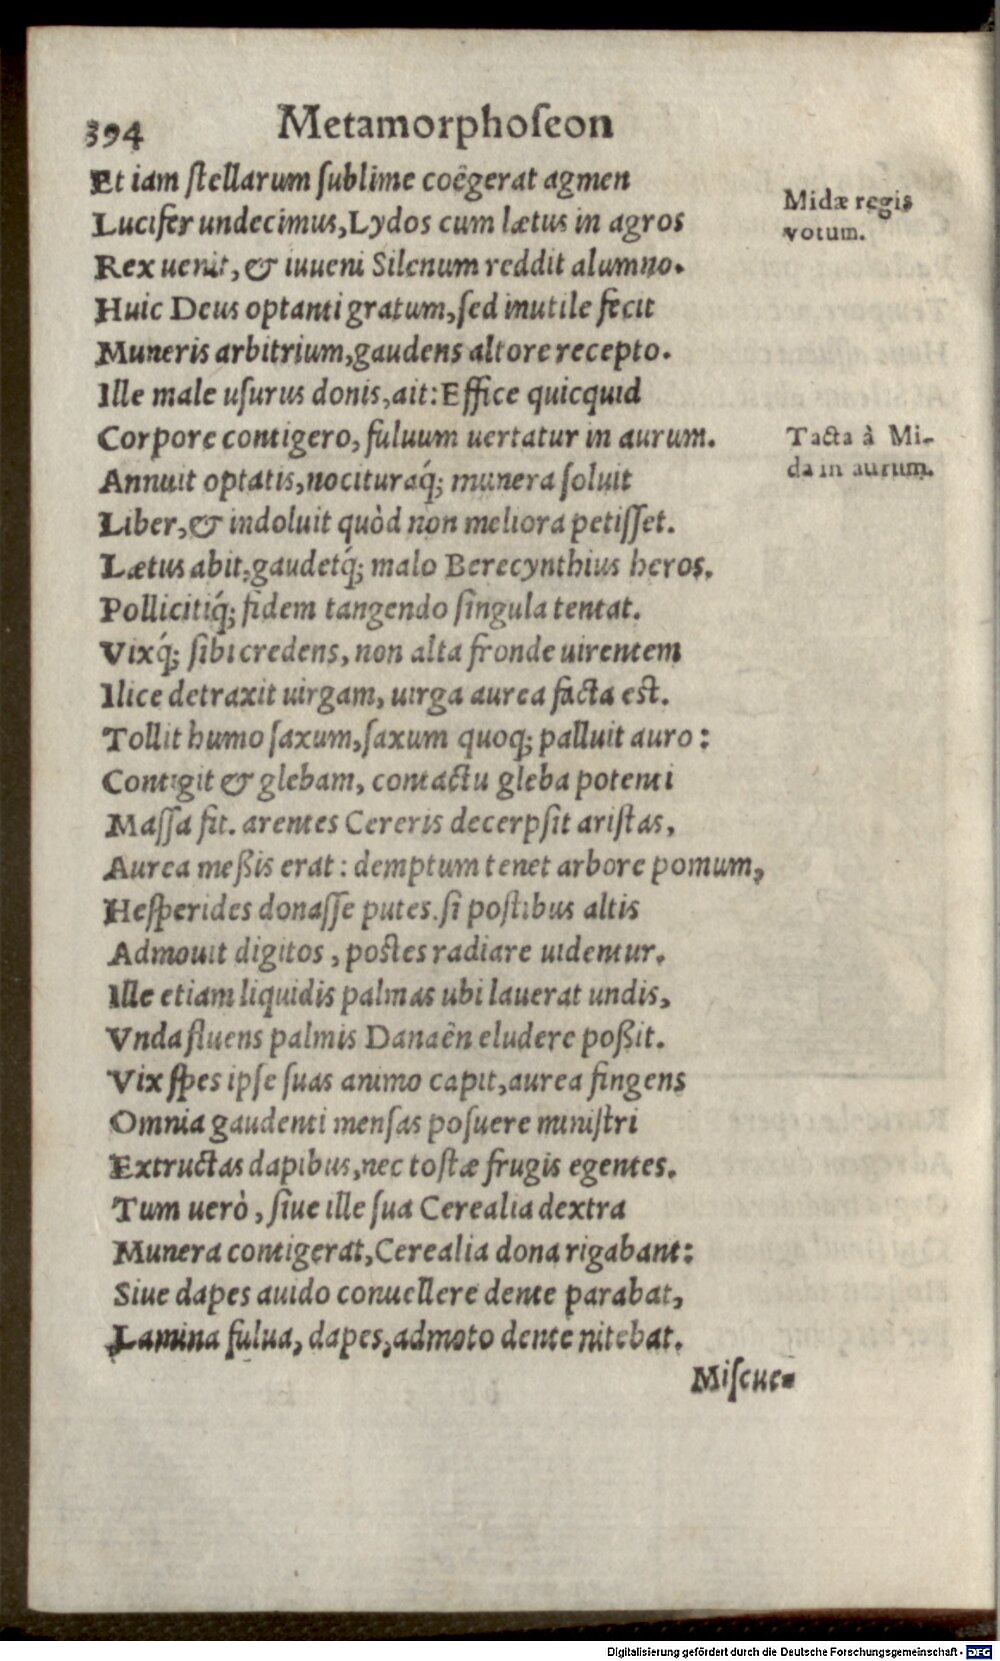 394 Metamorphoſeon
Et iam ſtellarum ſublime coêgerat agmen
Lucifer undecimus, Lydos cum lætus in agros
Rex uenit, & iuueni Silenum reddit alumno.
Huic Deus optanti gratum, ſed inutile fecit
Muneris arbitrium, gaudens altore recepto.
Ille male uſurus donis, ait: Effice quicquid
Corpore contigero, fuluum uertatur in aurum.
Annuit optatis, nocituraq́; munera ſoluit
Liber, & indoluit quòd non meliora petiſſet.
Lætus abit, gaudetq́; malo Berecynthius heros.
Pollicitiq́; fidem tangendo ſingula tentat.
Vixq́; ſibi credens, non alta fronde uirentem
Ilice detraxit uirgam, uirga aurea facta est.
Tollit humo ſaxum, ſaxum quoq; palluit auro:
Contigit & glebam, contactu gleba potenti
Maſſa fit. arentes Cereris decerpſit ariſtas,
Aurea meßis erat: demptum tenet arbore pomum,
Heſperides donaſſe putes. ſi poſtibus altis
Admouit digitos, postes radiare uidentur.
Ille etiam liquidis palmas ubi lauerat undis,
Vnda fluens palmis Danaên eludere poßit.
Vix ſpes ipſe ſuas animo capit, aurea fingens
Omnia gaudenti menſas poſuere miniſtri
Extructas dapibus, nec toſtæ frugis egentes.
Tum uerò, ſiue ille ſua Cerealia dextra
Munera contigerat, Cerealia dona rigabant:
Siue dapes auido conuellere dente parabat,
Lamina fulua, dapes, admoto dente nitebat.
Miſcue-
Midæ regis
votum.
Tacta à Mi-
da in aurum.
Digitalisierung gefördert durch die Deutsche Forschungsgemeinschaft - DFG